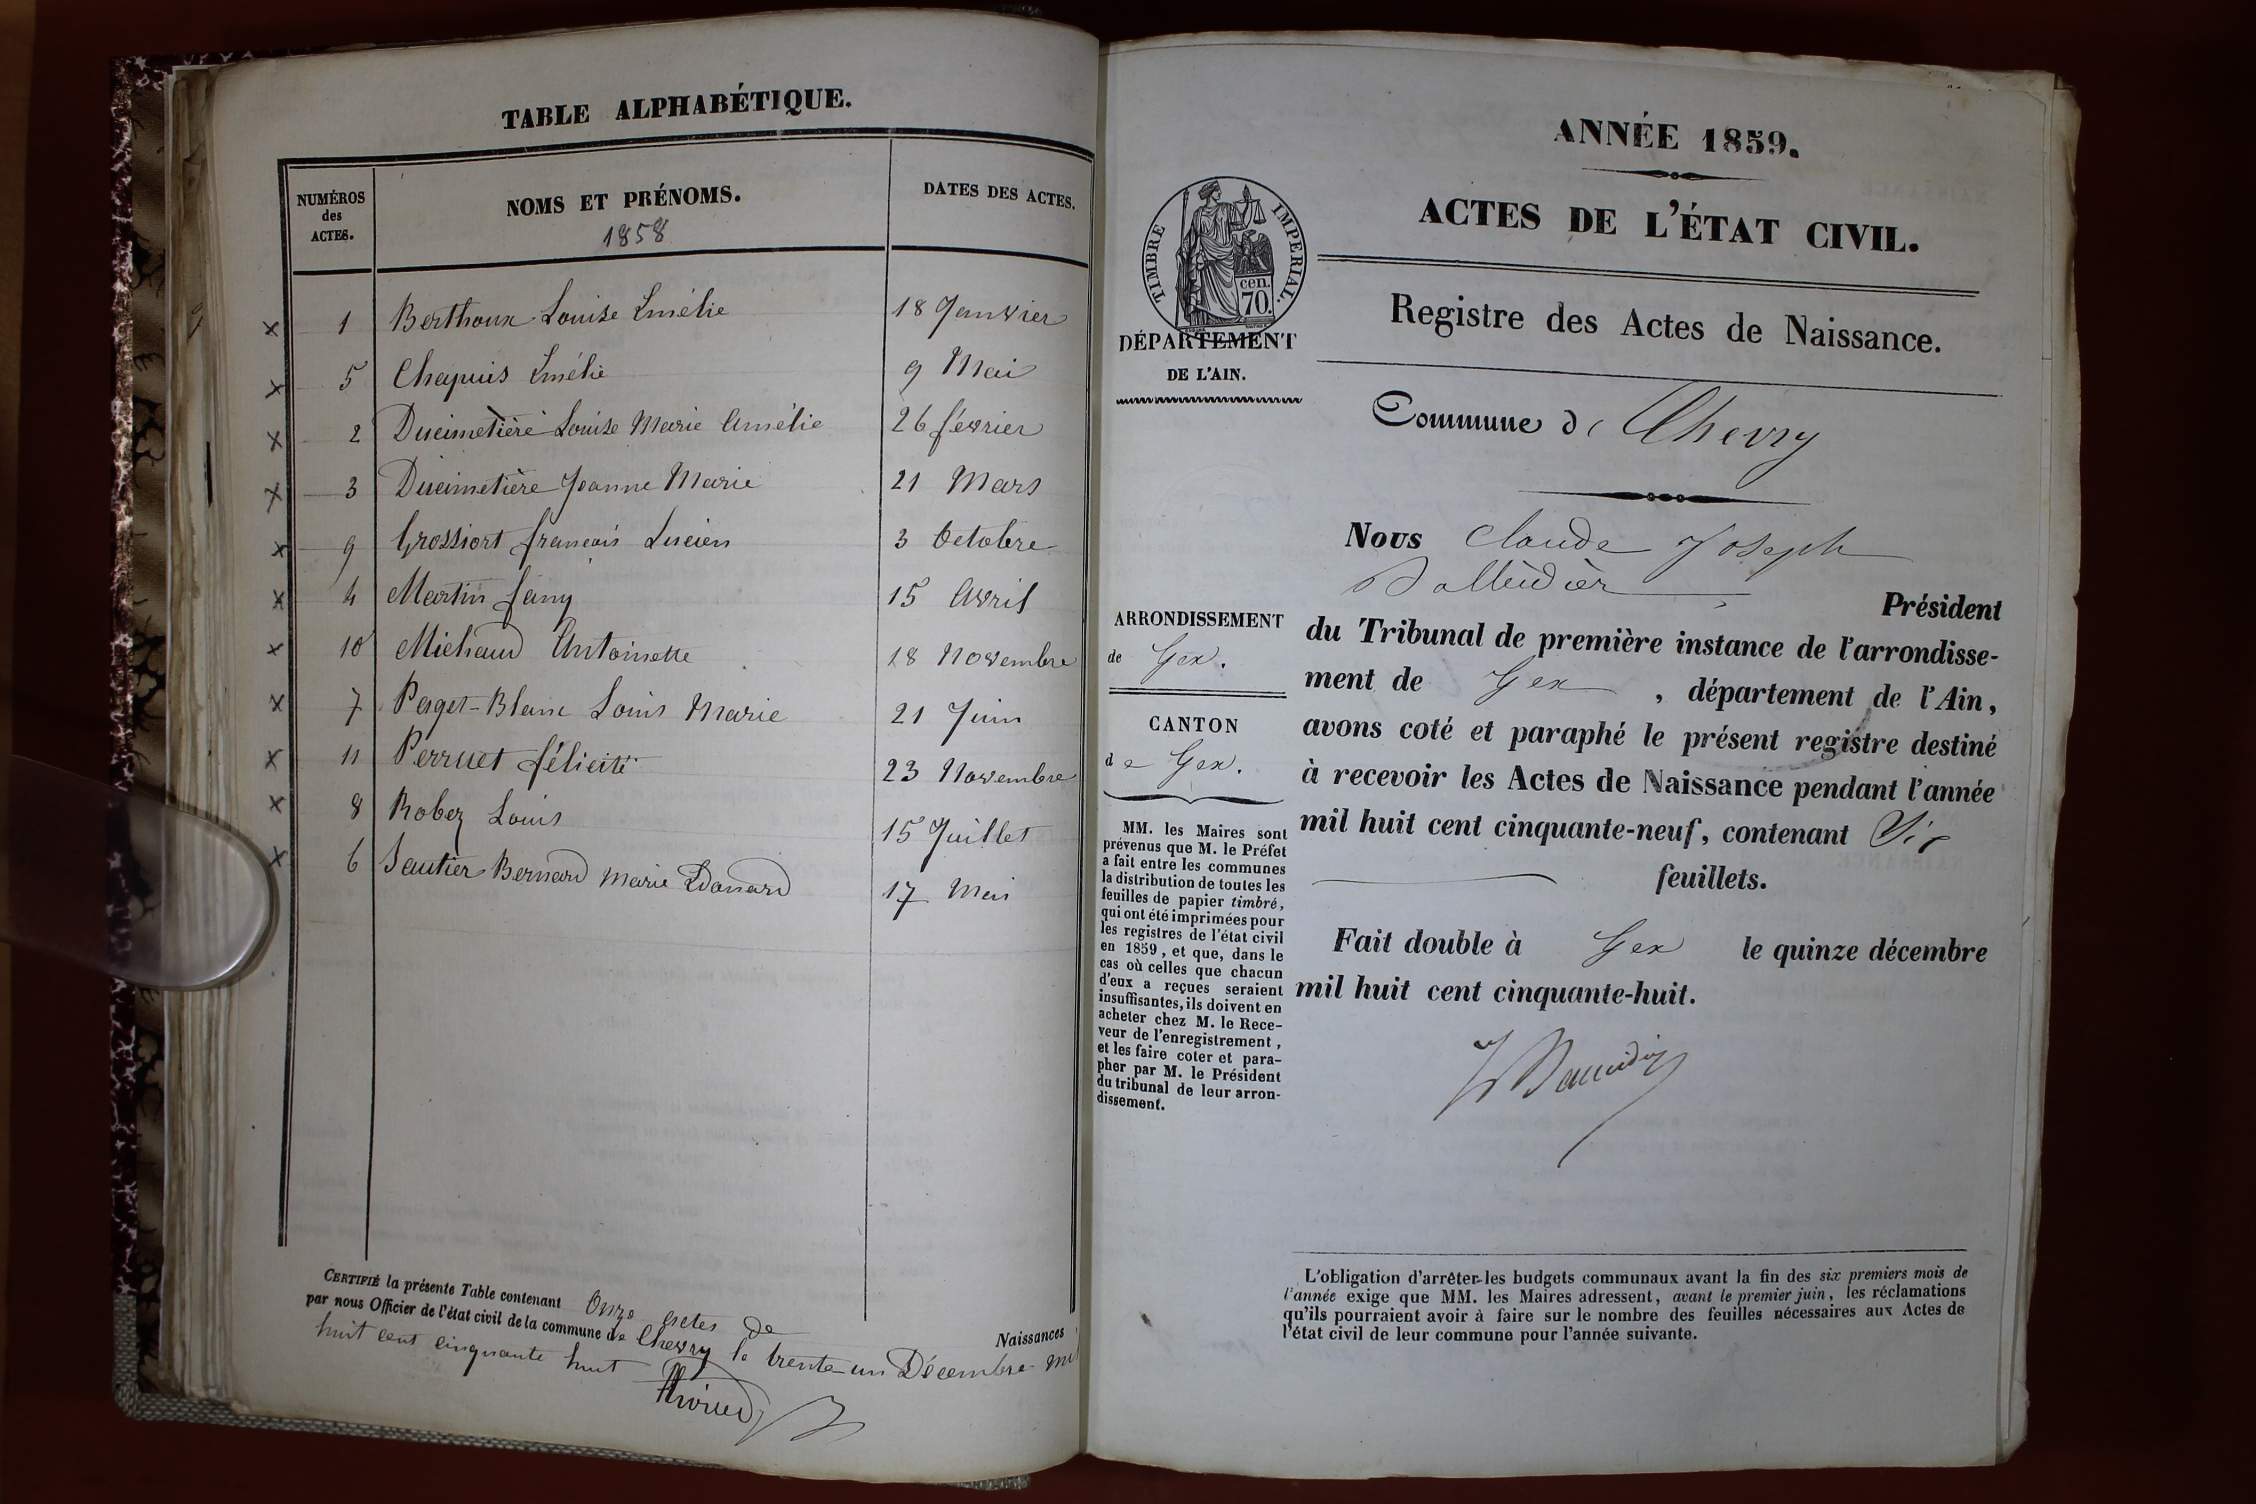 TABLE ALPHABÉTIQUE.
NUMÉROS des ACTES.
NOMS ET PRÉNOMS.
1858
DATES DES ACTES.
1 Berthoux Louise Emélie 18 Janvier
5 Chapuis Emélie 9 Mai
2 Ducimetière Louise Marie Amélie 26 février
3 Ducimetière Jeanne Marie 21 Mars
9 Grossiort françois Lucien 3 Octobre
4 Martin fany 15 Avril
10 Michaud Antoinette 18 Novembre
7 Perget-Blanc Louis Marie 21 Juin
11 Perruet félicité 23 Novembre
8 Robez Louis 15 Juillet
6 Sautier Bernard Marie Edouard 17 Mai
CERTIFIÉ la présente Table contenant Onze actes de Naissances
par nous Officier de l'état civil de la commune de Chevry le trente-un Décembre mil
huit cent cinquante huit
ANNÉE 1859.
ACTES DE L'ÉTAT CIVIL.
Registre des Actes de Naissance.
TIMBRE IMPÉRIAL.
cen.
70.
DÉPARTEMENT
DE L'AIN.
Commune de Chevry
ARRONDISSEMENT
de Gex.
CANTON
de Gex.
MM. les Maires sont
prévenus que M. le Préfet
a fait entre les communes
la distribution de toutes les
feuilles de papier timbré,
qui ont été imprimées pour
les registres de l'état civil
en 1859, et que, dans le
cas où celles que chacun
d'eux a reçues seraient
insuffisantes, ils doivent en
acheter chez M. le Rece-
veur de l'enregistrement,
et les faire coter et para-
pher par M. le Président
du tribunal de leur arron-
dissement.
Nous Claude Joseph
Président
du Tribunal de première instance de l'arrondisse-
ment de Gex, département de l'Ain,
avons coté et paraphé le présent registre destiné
à recevoir les Actes de Naissance pendant l'année
mil huit cent cinquante-neuf, contenant Six
feuillets.
Fait double à Gex le quinze décembre
mil huit cent cinquante-huit.
L'obligation d'arrêter les budgets communaux avant la fin des six premiers mois de
l'année exige que MM. les Maires adressent, avant le premier juin, les réclamations
qu'ils pourraient avoir à faire sur le nombre des feuilles nécessaires aux Actes de
l'état civil de leur commune pour l'année suivante.